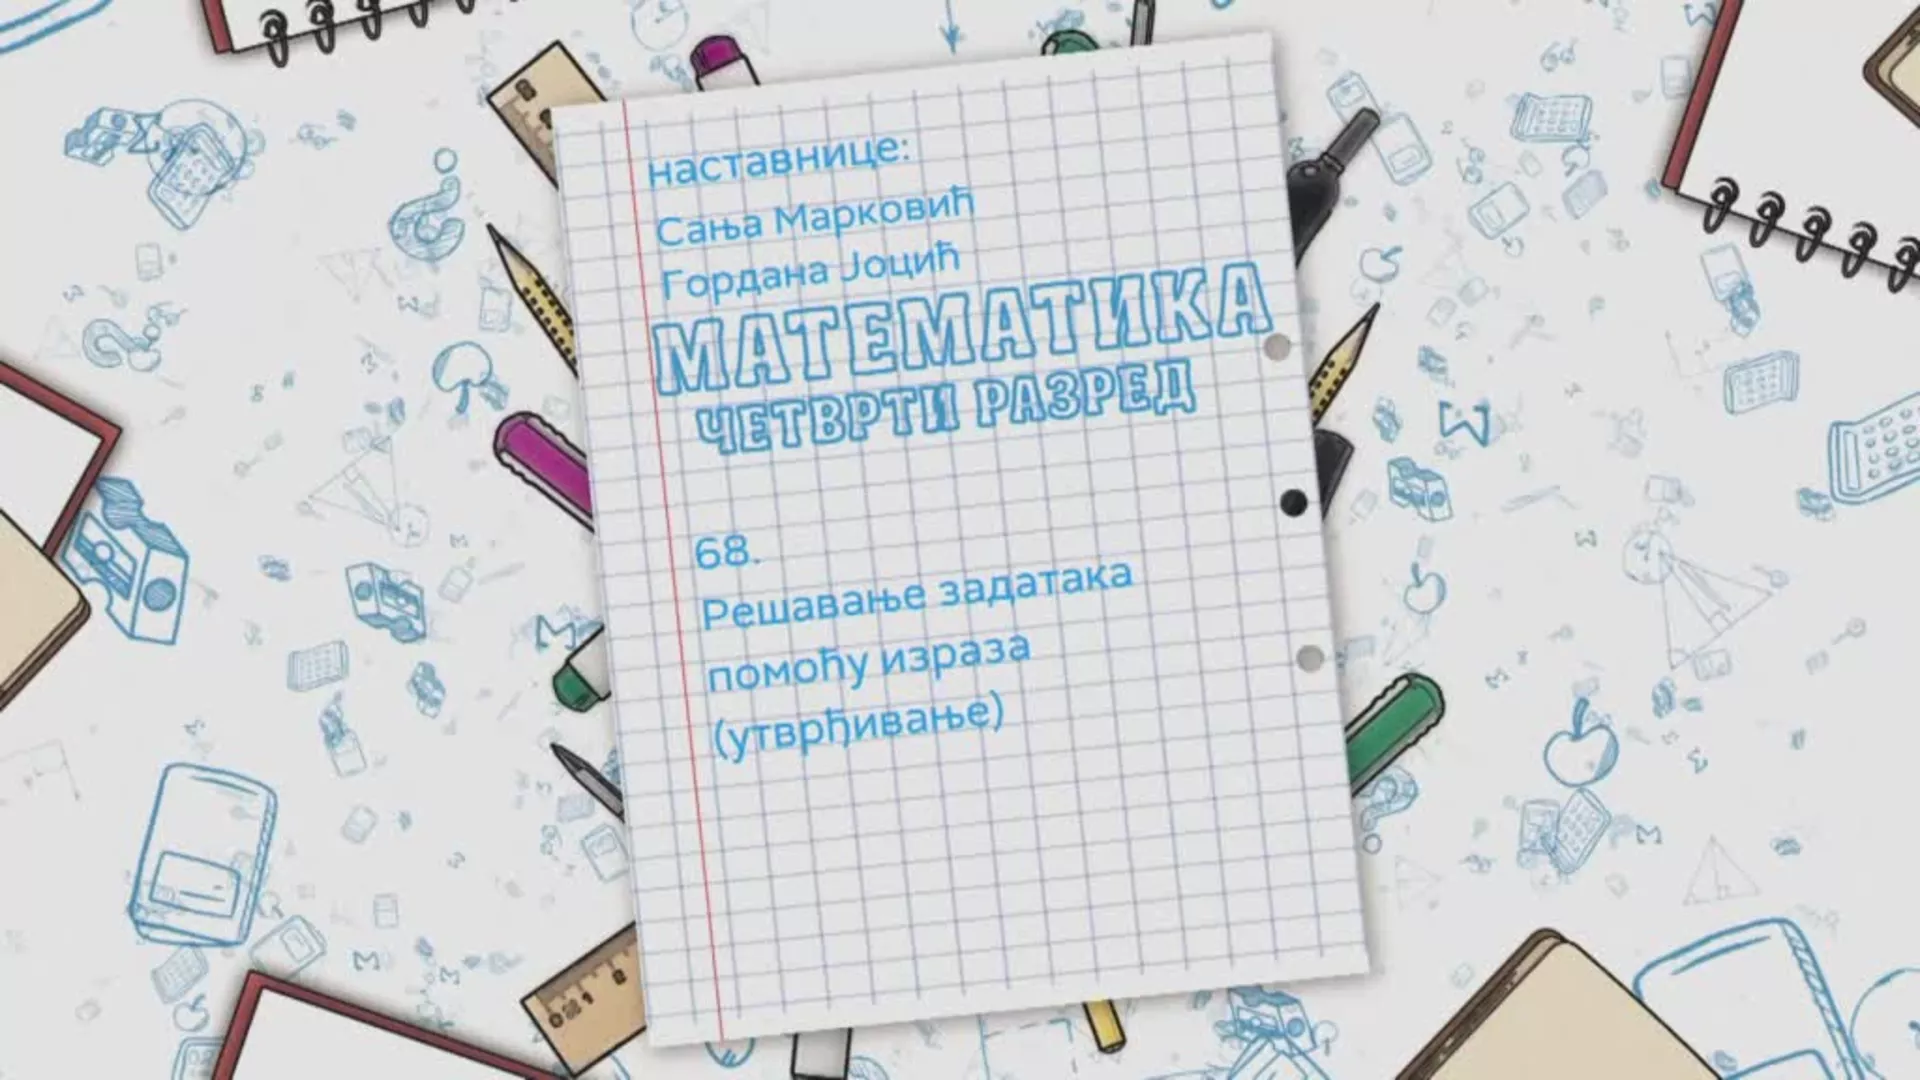 наставнице:
Сања Марковић
Гордана Јоцић
МАТЕМАТИКА
ЧЕТВРТИ РАЗРЕД
68.
Решавање задатака
помоћу израза
(утврђивање)